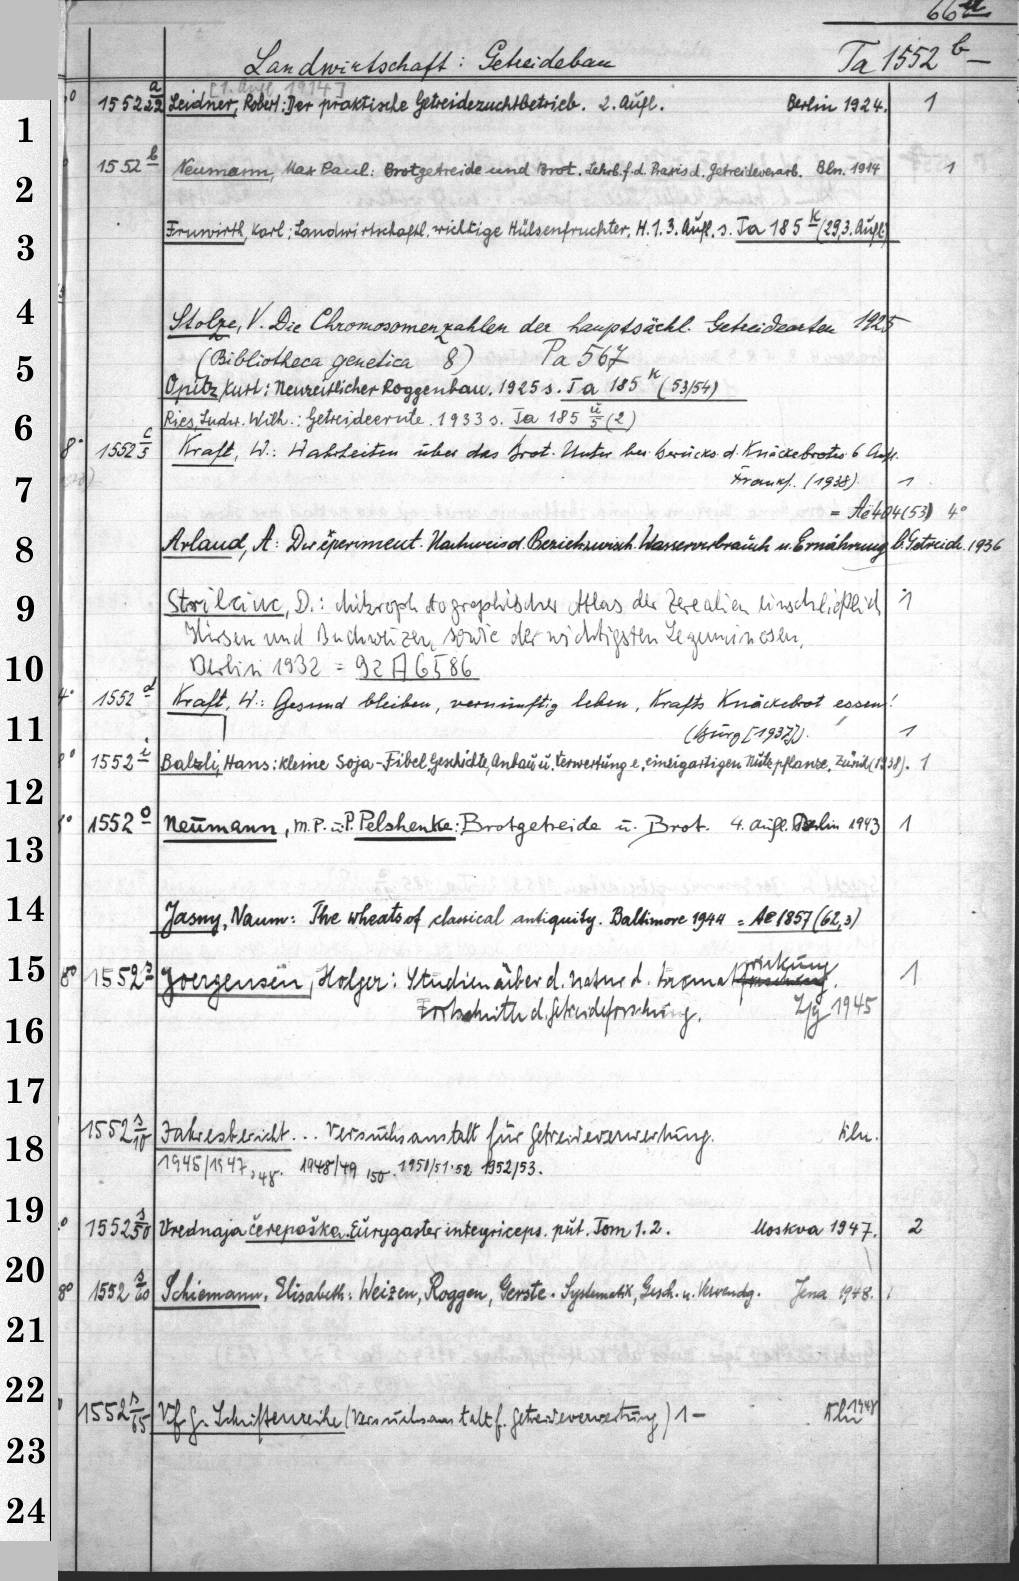 66
Landwirtschaft: Getreidebau Ta 1552 b —
[1. Aufl. 1914]
1552 a/22 Leidner, Robert: Der praktische Getreidezuchtbetrieb. 2. Aufl. Berlin 1924. 1
1
1552 b Neumann, Max Paul: Brotgetreide und Brot. Lehrb. f. d. Praxis d. Getreideverarb. Bln. 1914 1
2
Fruwirth, Karl: Landwirtschaftl. wichtige Hülsenfruchter. H. 1. 3. Aufl. s. Ta 185 k/(29,3. Aufl.)
3
4 Stolze, V. Die Chromosomenzahlen der hauptsächl. Getreidearten 1925
(Bibliotheca genetica 8) Pa 567
5
Opitz, Kurt: Neuzeitlicher Roggenbau. 1925 s. Ta 185 k (53/54)
6 Ries, Ludw. Wilh.: Getreideernte. 1933 s. Ta 185 u/5 (2)
8° 1552 c/5 Kraft, W.: Wahrheiten über das Brot. Unter bes. Berücks. d. Knäckebrotes 6 Aufl.
7 Frankf. (1938) 1
= Ae 404 (53) 4°
8 Arland, A: Der experiment. Nachweis d. Beziehg zwisch. Wasserverbrauch u. Ernährung b. Getreide. 1936
9 D.: Mikrophotographischer Atlas der Zerealien einschließlich 1
Hirsen und Buchweizen, sowie der wichtigsten Leguminosen,
10 Berlin 1932 = 92 A 6586
4° 1552 d Kraft, W.: Gesund bleiben, vernünftig leben, Krafts Knäckebrot essen!
11 (Burg [1937]). 1
8° 1552 i Balzli, Hans: Kleine Soja-Fibel Geschichte, Anbau u. Verwertung e. einzigartigen Nutzpflanze. Zürich (1938). 1
12
1552 o Neumann, M. P. u. P. Pelshenke: Brotgetreide u. Brot. 4. Aufl. Berlin 1943 1
13
14 Jasny, Naum: The wheats of classical antiquity. Baltimore 1944 = Ae 1857 (62,3)
15 8° 1552 Joergensen, Holger: Studien über d. Natur d. Bromatwirkung. 1
16 Fortschritte d. Getreideforschung. Lzg 1945
17
18 1552 s/10 Jahresbericht... Versuchsanstalt für Getreideverwertung. Kln.
1945/1947, 48. 1948/49 150. 1951/51.52 1952/53.
19 1552 s/50 Vrednaja čerepaška. Eurygaster integriceps. put. Tom 1. 2. Moskva 1947. 2
20 8° 1552 s/60 Schiemann, Elisabeth: Weizen, Roggen, Gerste. Systematik, Gesch. u. Verwendg. Jena 1948. 1
21
22 1552 s/65 Vfg. Schriftenreihe (Versuchsanstalt f. Getreideverwertung) 1 — Kln 1948
23
24